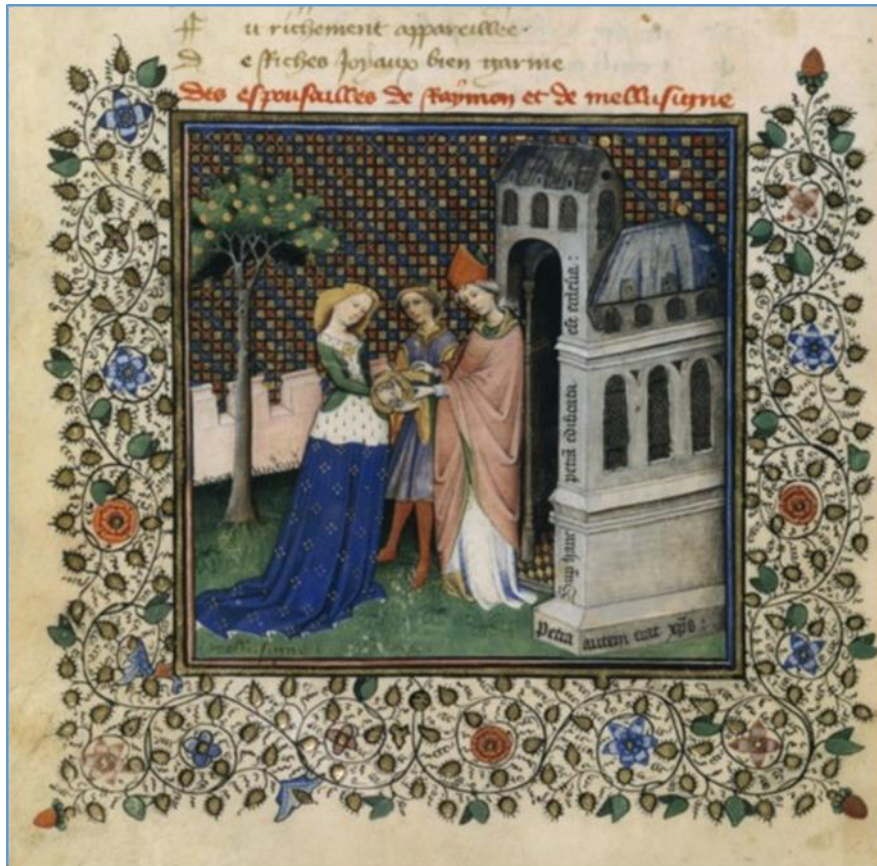 Fu richement appareillee.
De riches Joyaux bien garnie
des espousailles de Raymon et de mellusigne
Sup hanc petrā edificata est ecclesia :
petra autem erat xp̄s :
mellusigne